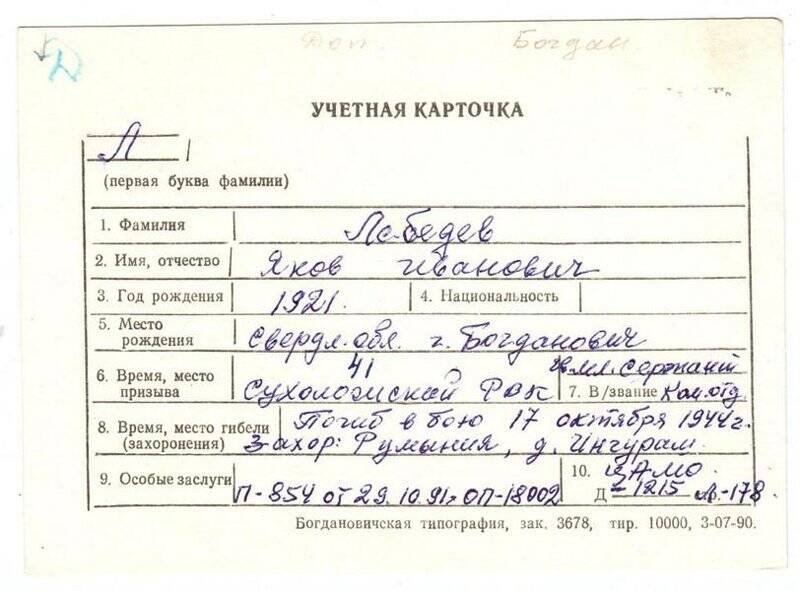 Д
Доп. Богдан.
УЧЕТНАЯ КАРТОЧКА
Л
(первая буква фамилии)
1. Фамилия Лебедев
2. Имя, отчество Яков Иванович
3. Год рождения 1921. 4. Национальность
5. Место рождения Свердл. обл. г. Богданович
6. Время, место призыва 41 Сухоложский РВК
7. В/звание мл. сержант Ком. отд.
8. Время, место гибели (захоронения) Погиб в бою 17 октября 1944 г.
Захор: Румыния, д. Ингурам.
9. Особые заслуги П-854 от 29.10.91г ОП-18002
10. ЦАМО
Д-1215 л.-178
Богдановичская типография, зак. 3678, тир. 10000, 3-07-90.